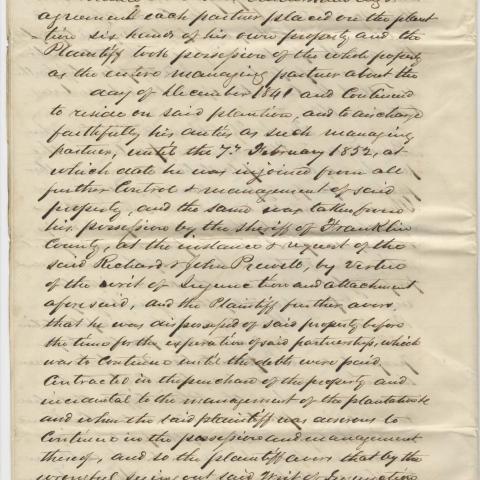 agreement each partner placed on the plant
-tion six hands of his own property and the
Plaintiff took possession of the whole property
as the entire managing partner about the
day of December 1841 and Continued
to reside on said plantion, and to discharge
faithfully his duties as such managing
partner, until the 7th February 1852, at
which date he was injoined from all
further Control & management of said
property, and the same was taken from
his possession by the Sheriff of Franklin
County, at the instance & request of the
said Richard & John Prewett, by virtue
of the writ of Injunction and attachment
aforesaid, and the Plaintiff further avers,
that he was dispossessed of said property before
the time for the expiration of said partnership, which
was to Continue until the debts were paid,
Contracted in the purchase of the property and
incidental to the management of the plantation
and when the said plaintiff was desirous to
Continue in the possession and management
thereof, and so the plaintiff avers that by the
wrongful suing out said Writ of Injunction